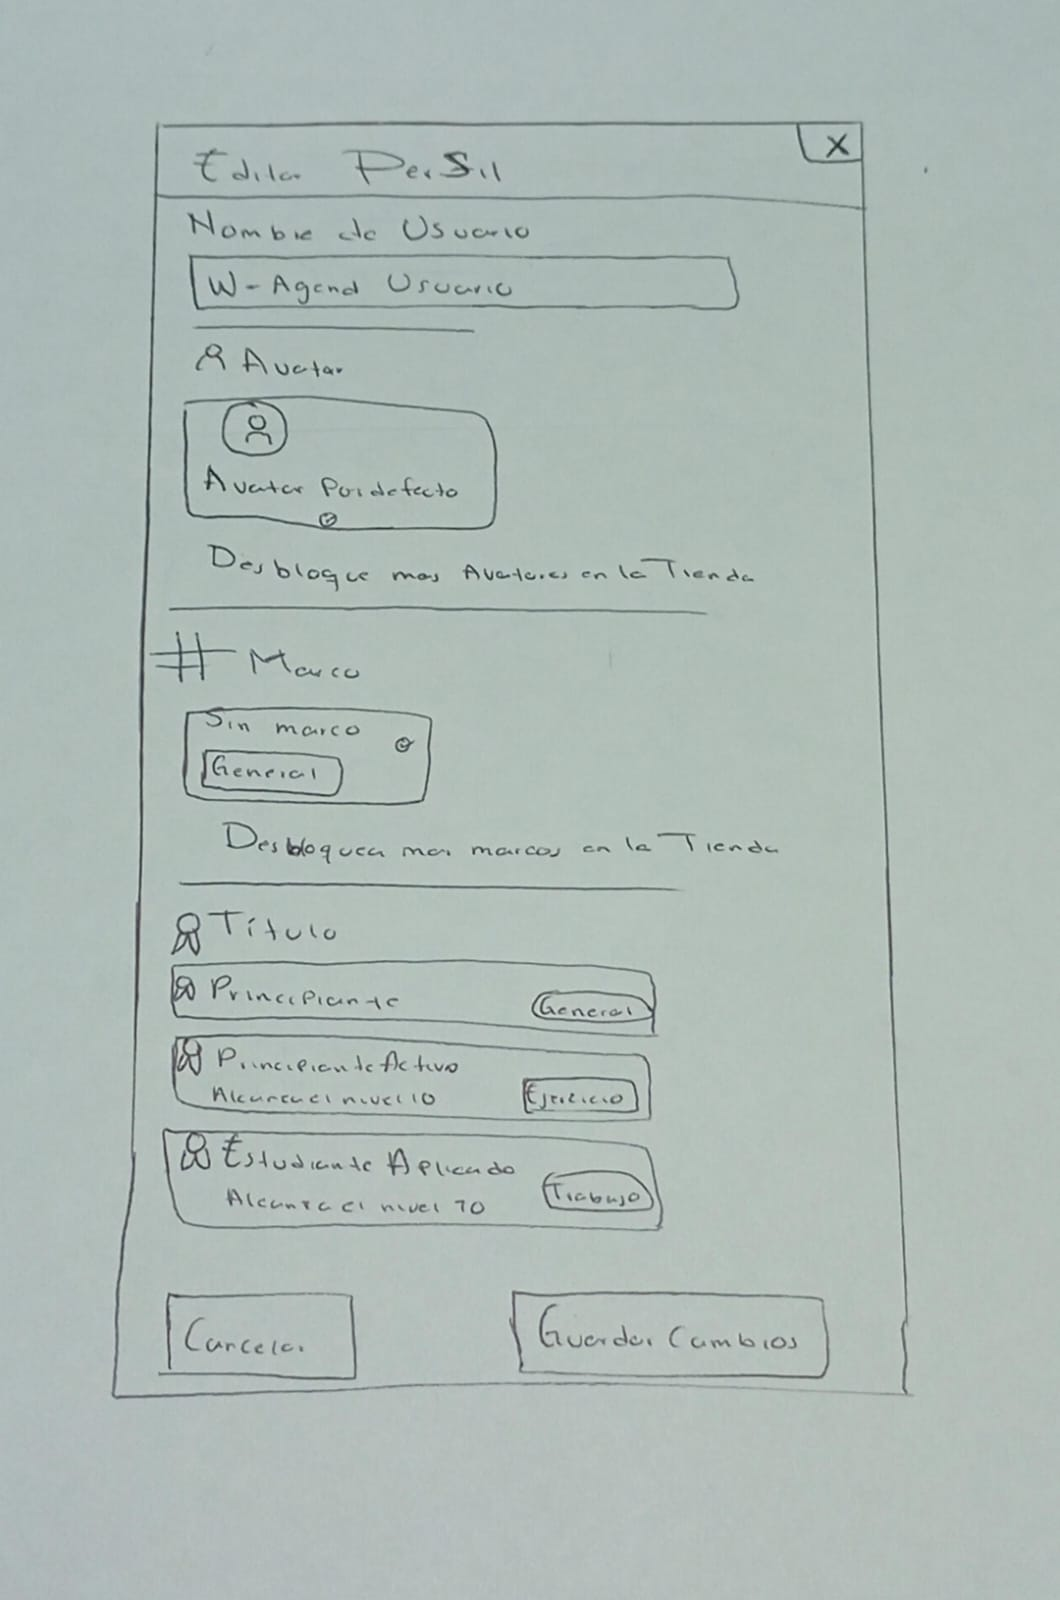 Editar Perfil
X
Nombre de Usuario
W-Agend Usuario
Avatar
Avatar Por defecto
Desbloque mas Avatares en la Tienda
# Marco
Sin marco
General
Desbloquea mas marcos en la Tienda
Título
Principiante General
Principiante Activo
Alcanza el nivel 10 Ejercicio
Estudiante Aplicado
Alcanza el nivel 10 Trabajo
Cancelar Guardar Cambios